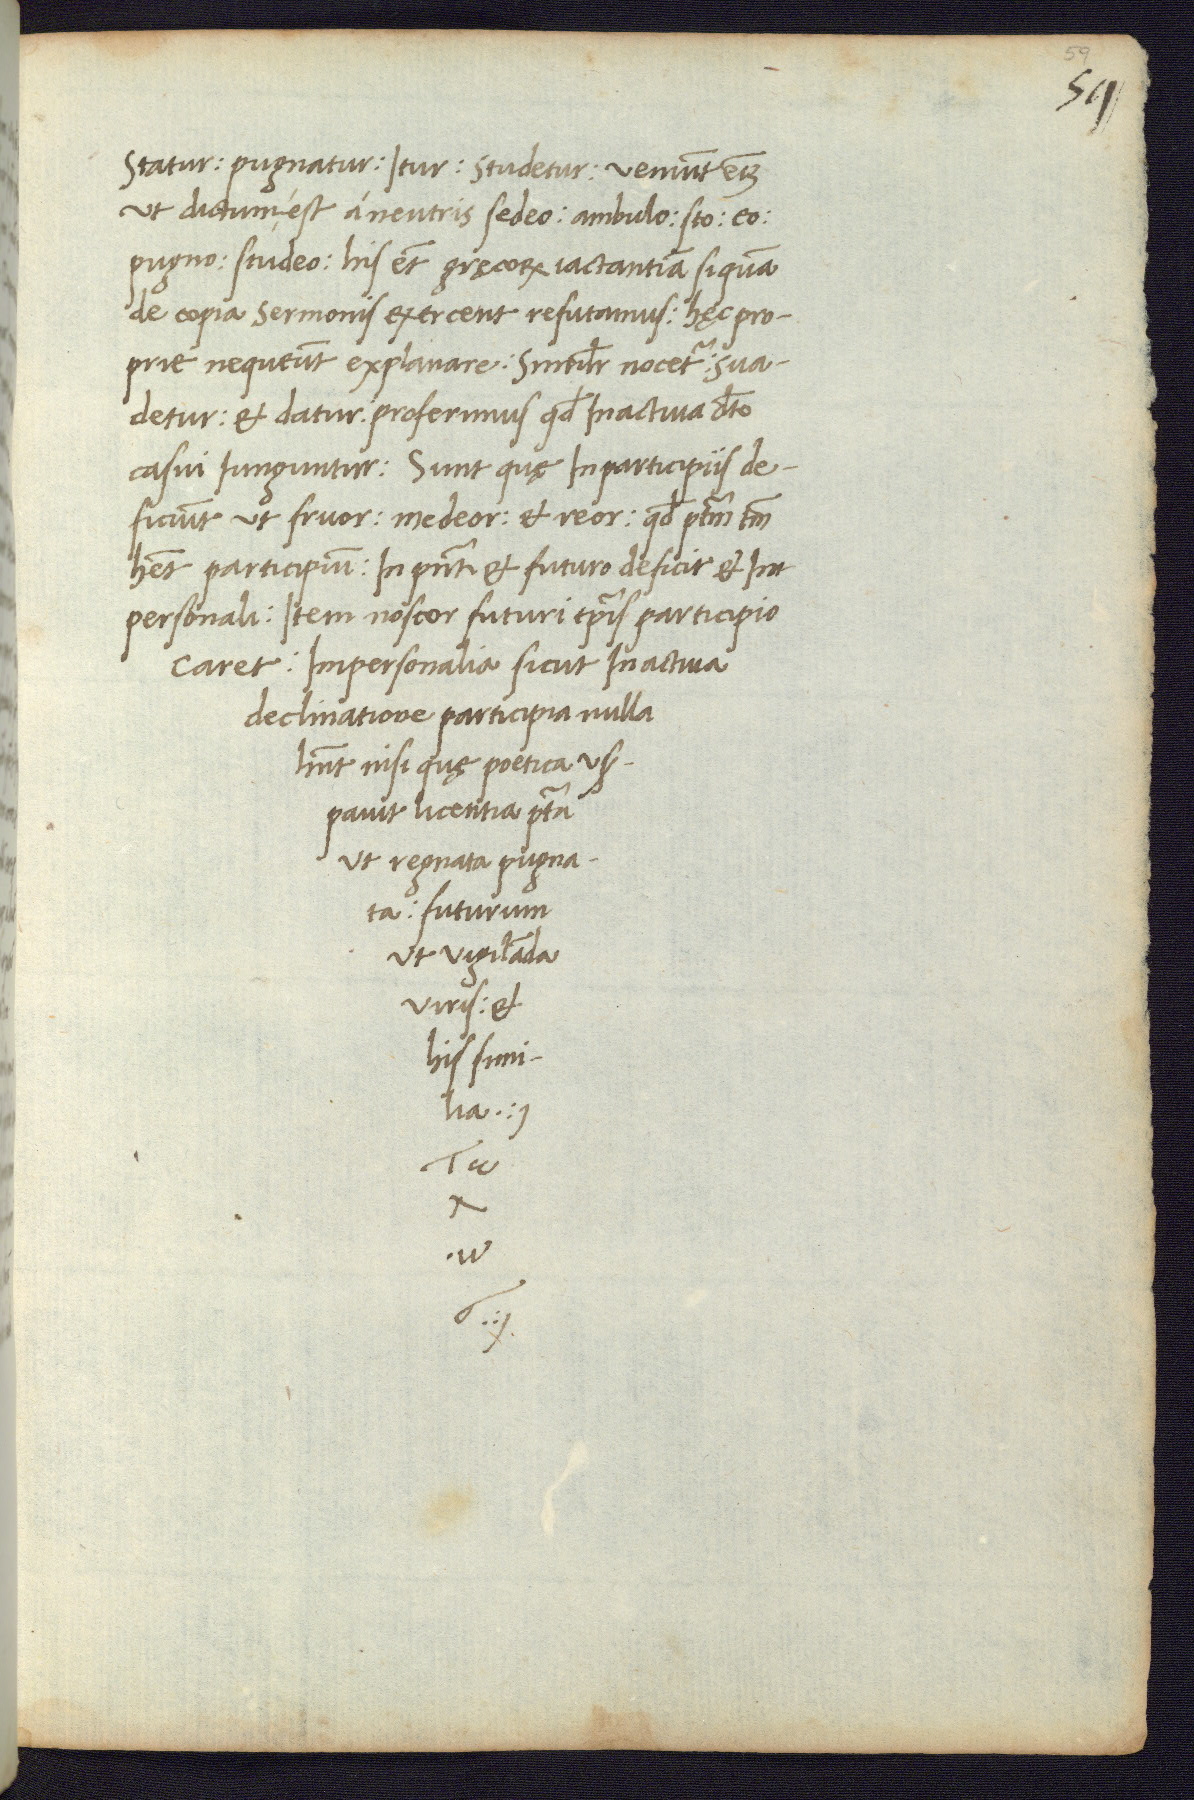 59
59
Statur: pugnatur: Itur: Studetur: veniūt em̄
vt dictum est á neutris sedeo: ambulo: sto: eo:
pugno: studeo: his et̄ gręcoꝝ iactantiā siquā
de copia Sermonis exercent refutamus: hęc pro-
prie nequeūt explanare: Similr̄ nocet᷑: Sua-
detur: et datur: proferimus qđ In actiua dto
casui Iunguntur: Sunt quę In participiis de-
ficiūt vt fruor: medeor: et reor: qđ pt̄m tm̄
hēt participiū: In pn̄ti et futuro deficit et Im
personali: Item noscor futuri tp̄ris participio
Caret: Impersonalia sicut In actiua
declinatione participia nulla
hn̄t nisi quę poetica vsr-
pauit licentia pt̄a
vt regnata pugna-
ta: futurum
vt vigilāda
viris: et
his simi-
lia .:;
τω
.ω